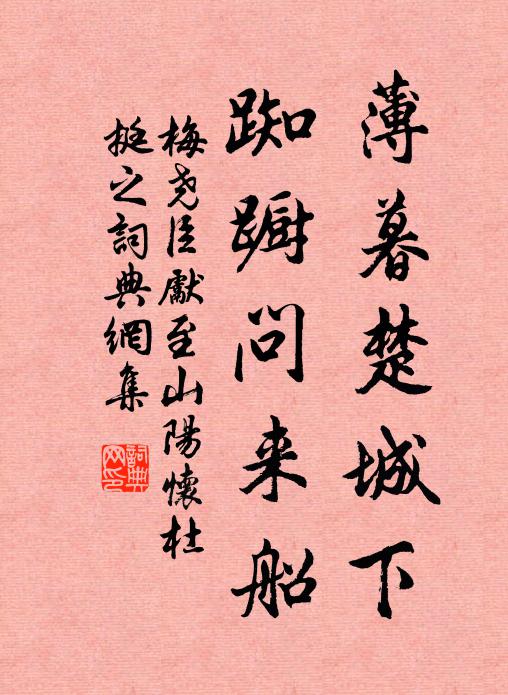 薄暮楚城下
踟蹰问来船
梅尧臣獻至山陽懷杜
挺之詞典網集
詞典网印